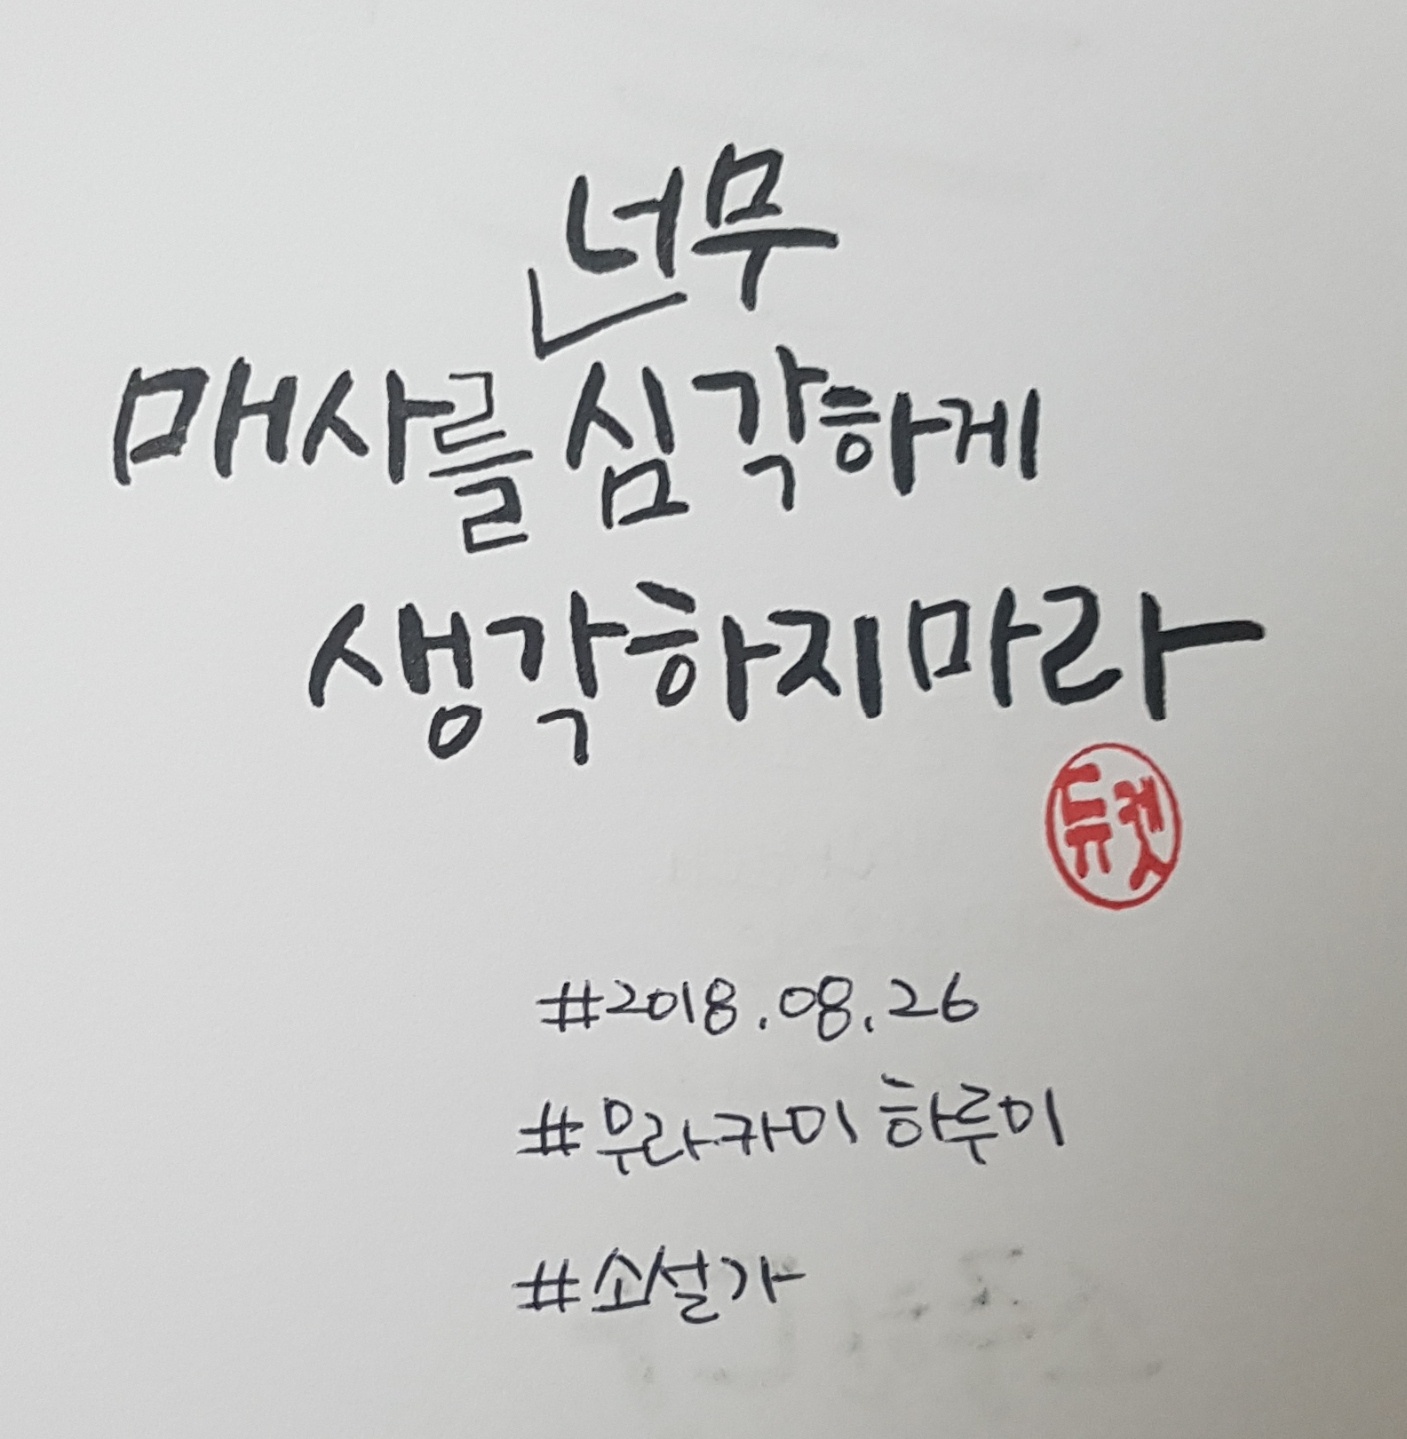 너무
매사를 심각하게
생각하지마라
듀켓
#2018.08.26
#무라카미 하루미
#소설가